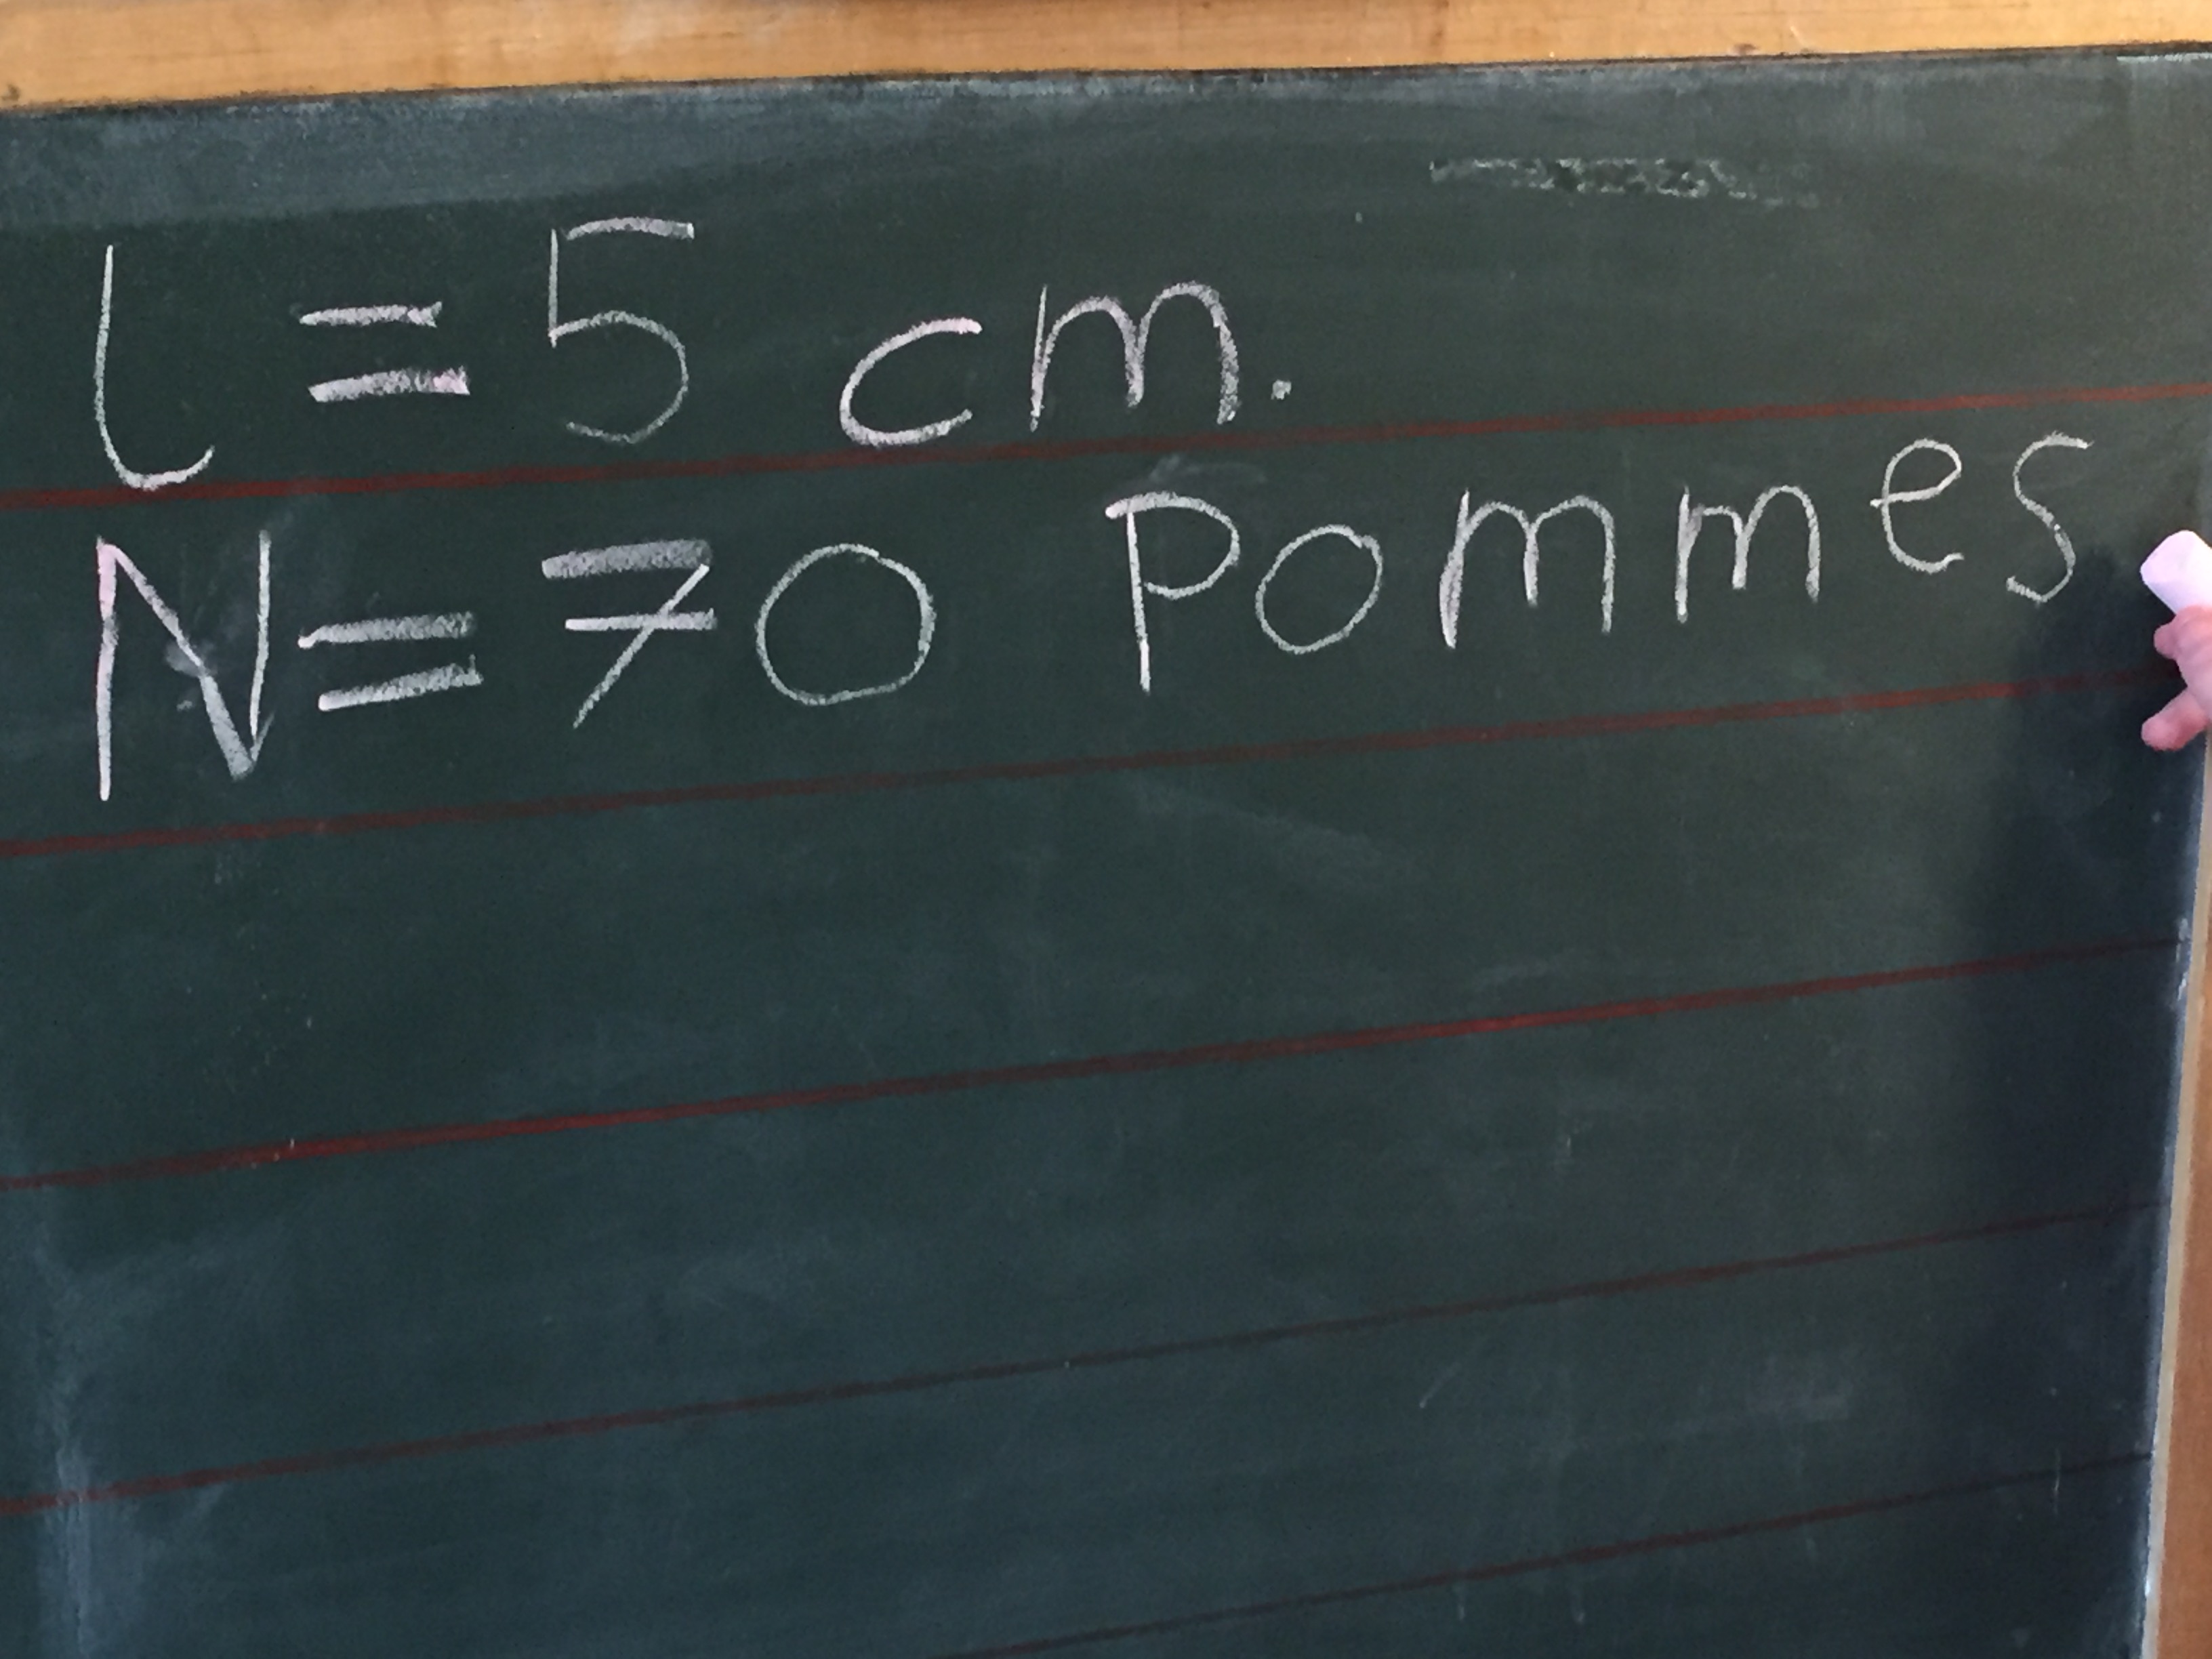 l = 5 cm.
N = 70 Pommes